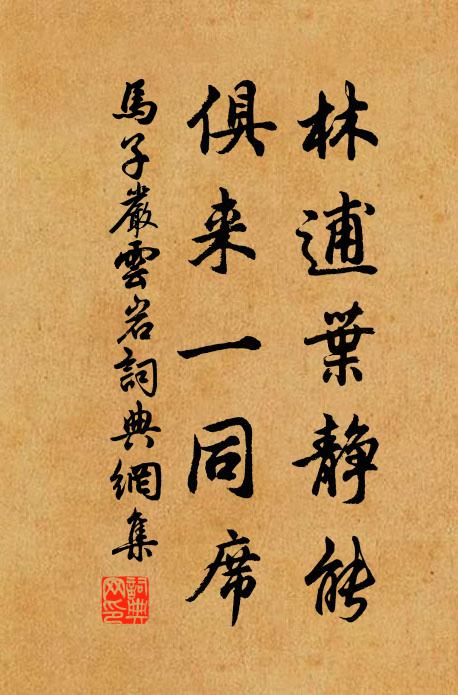 林逋葉靜能
俱来一同席
馬子嚴雲岩詞典網集
詞典网印